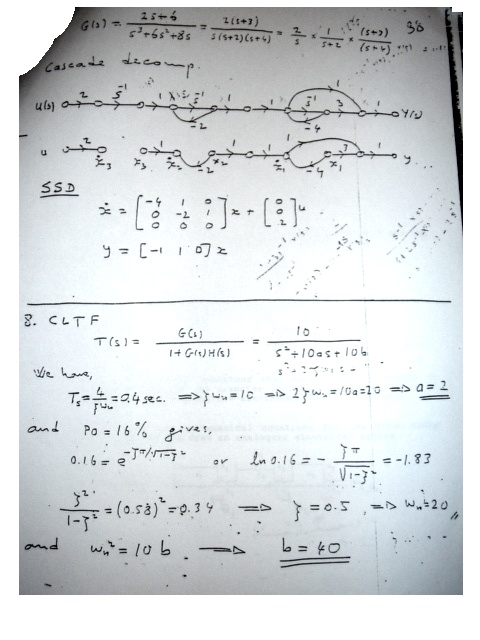 G(s) = (2s+6)/(s³+6s²+8s) = 2(s+3)/(s(s+2)(s+4)) = 2/s × 1/(s+2) × (s+3)/(s+4)
36
Cascade decomp.
U(s) 2 s⁻¹ 1 s⁻¹ 1 1 1 s⁻¹ 3 1 Y(s)
-2 -4
u 2 ẋ₃ x₃ 1 ẋ₂ x₂ 1 1 ẋ₁ 1 x₁ 3 1 y
-2 -4
SSD
ẋ = [-4 1 0; 0 -2 1; 0 0 0] x + [0; 0; 2] u
y = [-1 1 0] x
8. CLTF
T(s) = G(s)/(1+G(s)H(s)) = 10/(s²+10as+10b)
We have,
Ts = 4/ζωn = 0.4 sec. => ζωn = 10 => 2ζωn = 10a = 20 => a = 2
and PO = 16% gives,
0.16 = e^(-ζπ/√(1-ζ²)) or ln 0.16 = - ζπ/√(1-ζ²) = -1.83
ζ²/(1-ζ²) = (0.58)² = 0.34 => ζ = 0.5, => ωn = 20,,
and ωn² = 10 b => b = 40